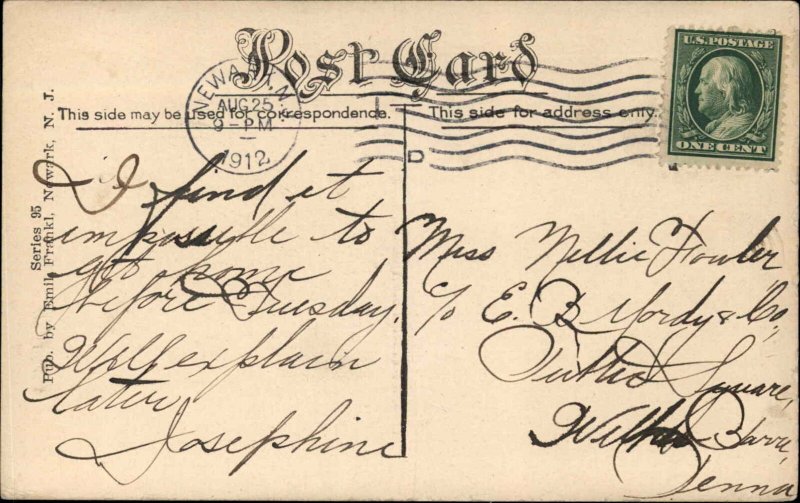 Post Card
This side may be used for correspondence.
This side for address only.
NEWARK, N.J.
AUG 25
9-PM
1912
D
U.S. POSTAGE
ONE CENT
Series 95
Pub. by Emil Frankl, Newark, N. J.
I find it
impossible to
get home
before Tuesday.
Will explain
later
Josephine
Miss Nellie Fowler
c/o E. B. & Co,
Public Square,
Wilkes-Barre,
Penna